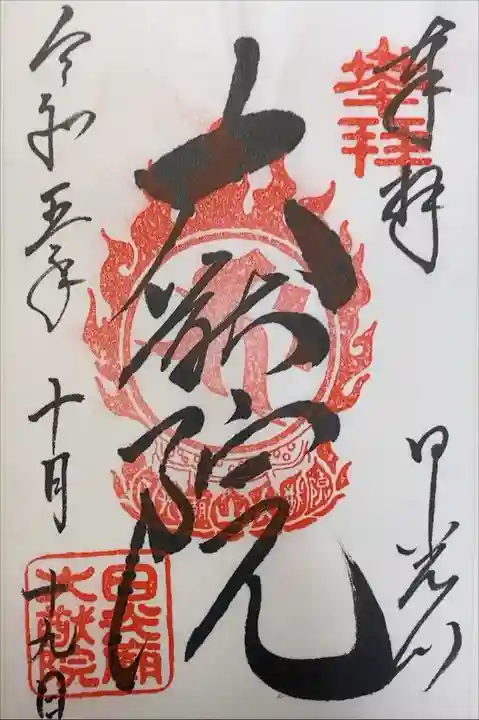 奉拝
奉拝
日光山
大猷院
令和五年
十月
十九日
日光廟
大猷院